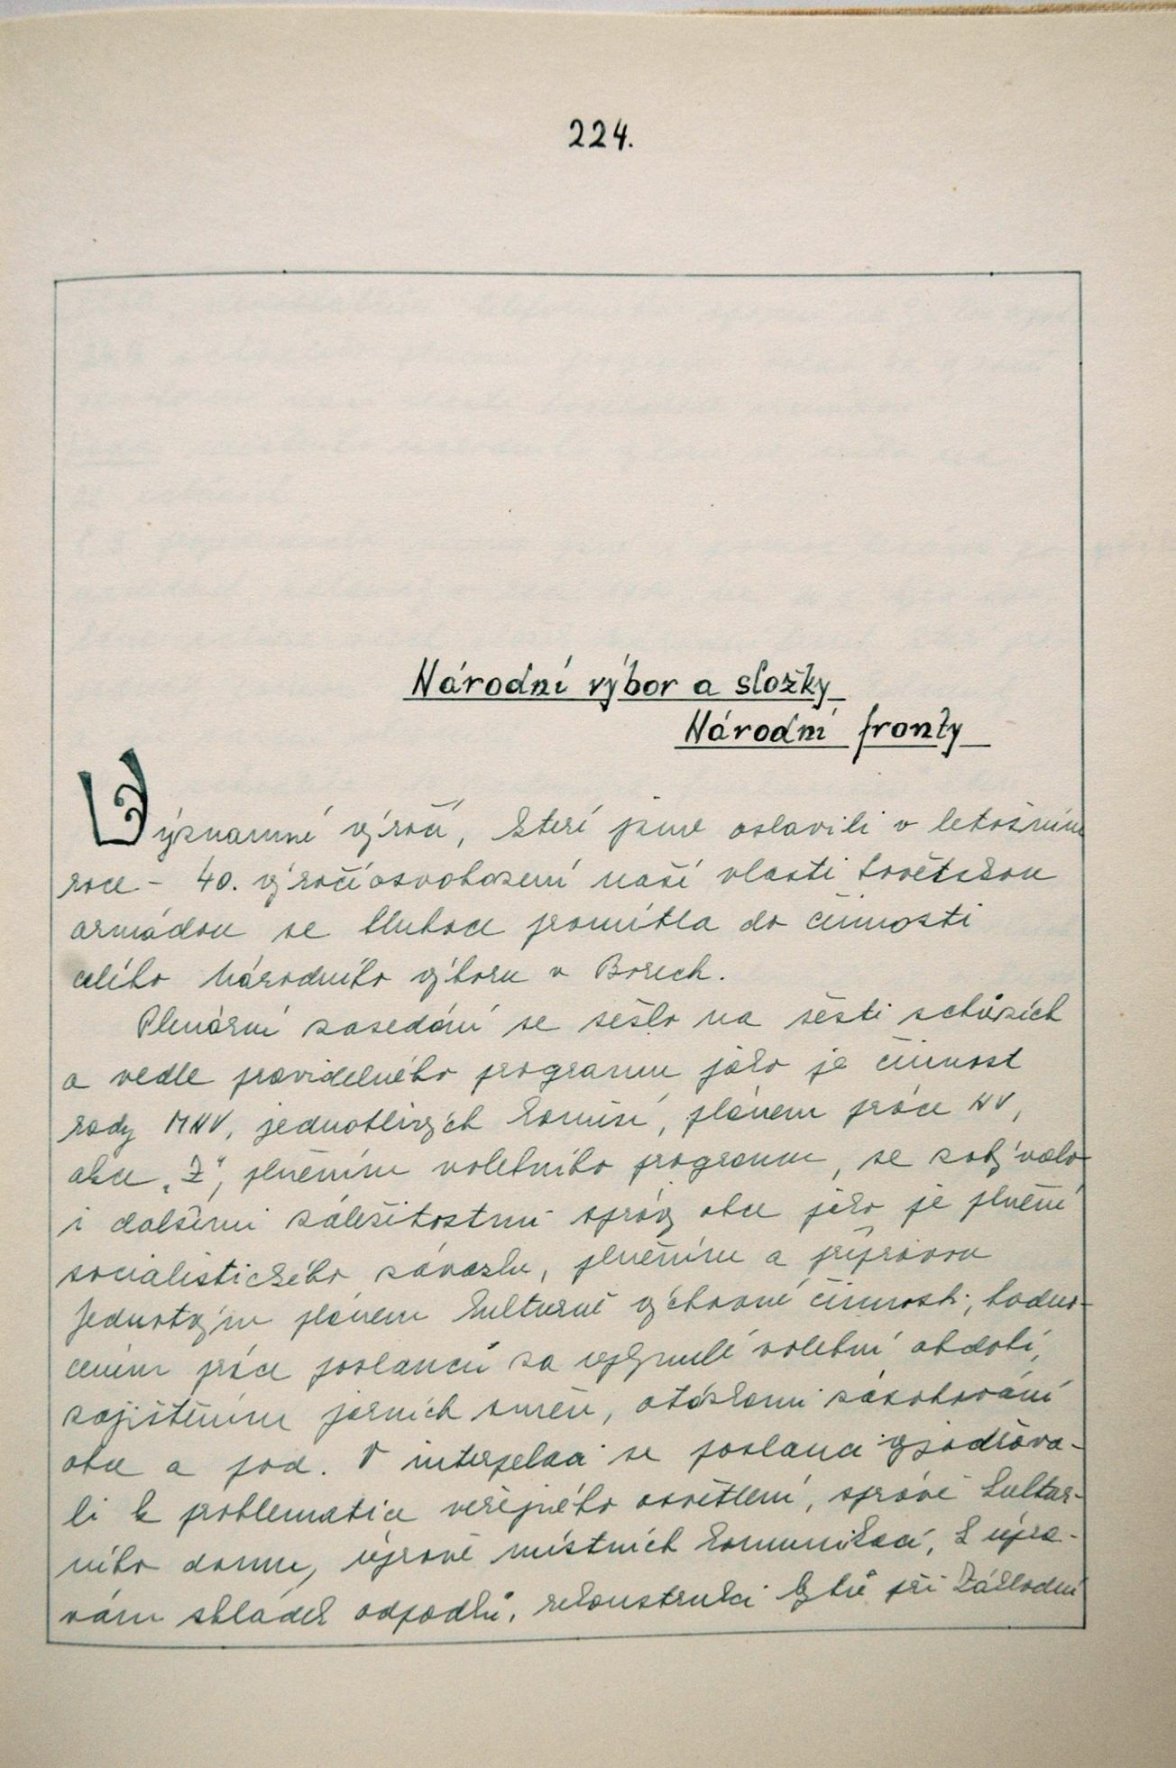 224.
Národní výbor a složky
Národní fronty
Významné výročí, které jsme oslavili v letošním
roce - 40. výročí osvobození naší vlasti Sovětskou
armádou se hluboce promítla do činnosti
celého Národního výboru v Borech.
Plenární zasedání se sešlo na šesti schůzích
a vedle pravidelného programu jako je činnost
rady MNV, jednotlivých komisí, plánem práce NV,
akce „Z", plněním volebního programu, se zabývalo
i dalšími záležitostmi správy obce jako je plnění
socialistického závazku, plněním a přípravou
Jednotným plánem kulturně výchovné činnosti, hodno-
cením práce poslanců za uplynulé volební období,
zajištěním jarních směn, otázkami zásobování
obce a pod. V interpelaci se poslanci vyjadřova-
li k problematice veřejného osvětlení, správě kultur-
ního domu, úpravě místních komunikací, k úpra-
vám skládek odpadků, rekonstrukci bytů při Základní